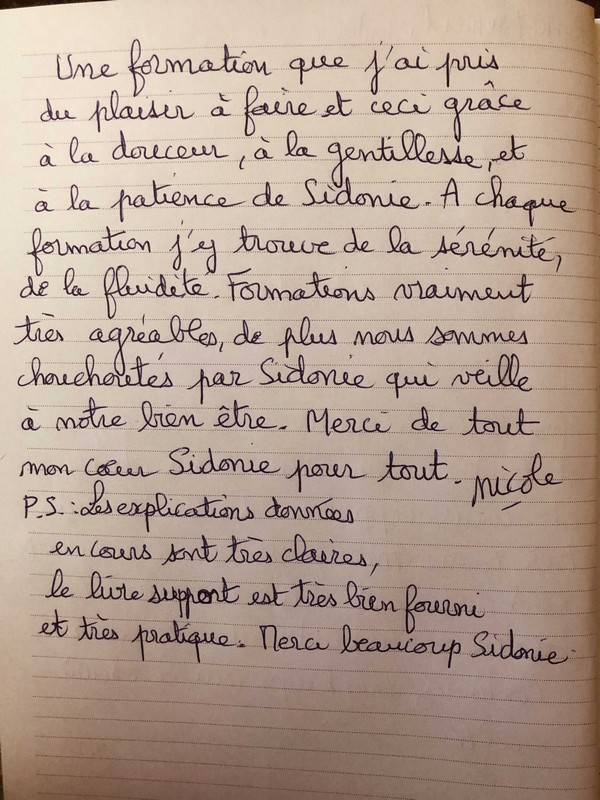 Une formation que j'ai pris
du plaisir à faire et ceci grâce
à la douceur, à la gentillesse, et
à la patience de Sidonie. A chaque
formation j'y trouve de la sérénité,
de la fluidité. Formations vraiment
très agréables, de plus nous sommes
chouchoutés par Sidonie qui veille
à notre bien être. Merci de tout
mon cœur Sidonie pour tout. Nicole
P.S.: Les explications données
en cours sont très claires,
le livre support est très bien fourni
et très pratique. Merci beaucoup Sidonie.